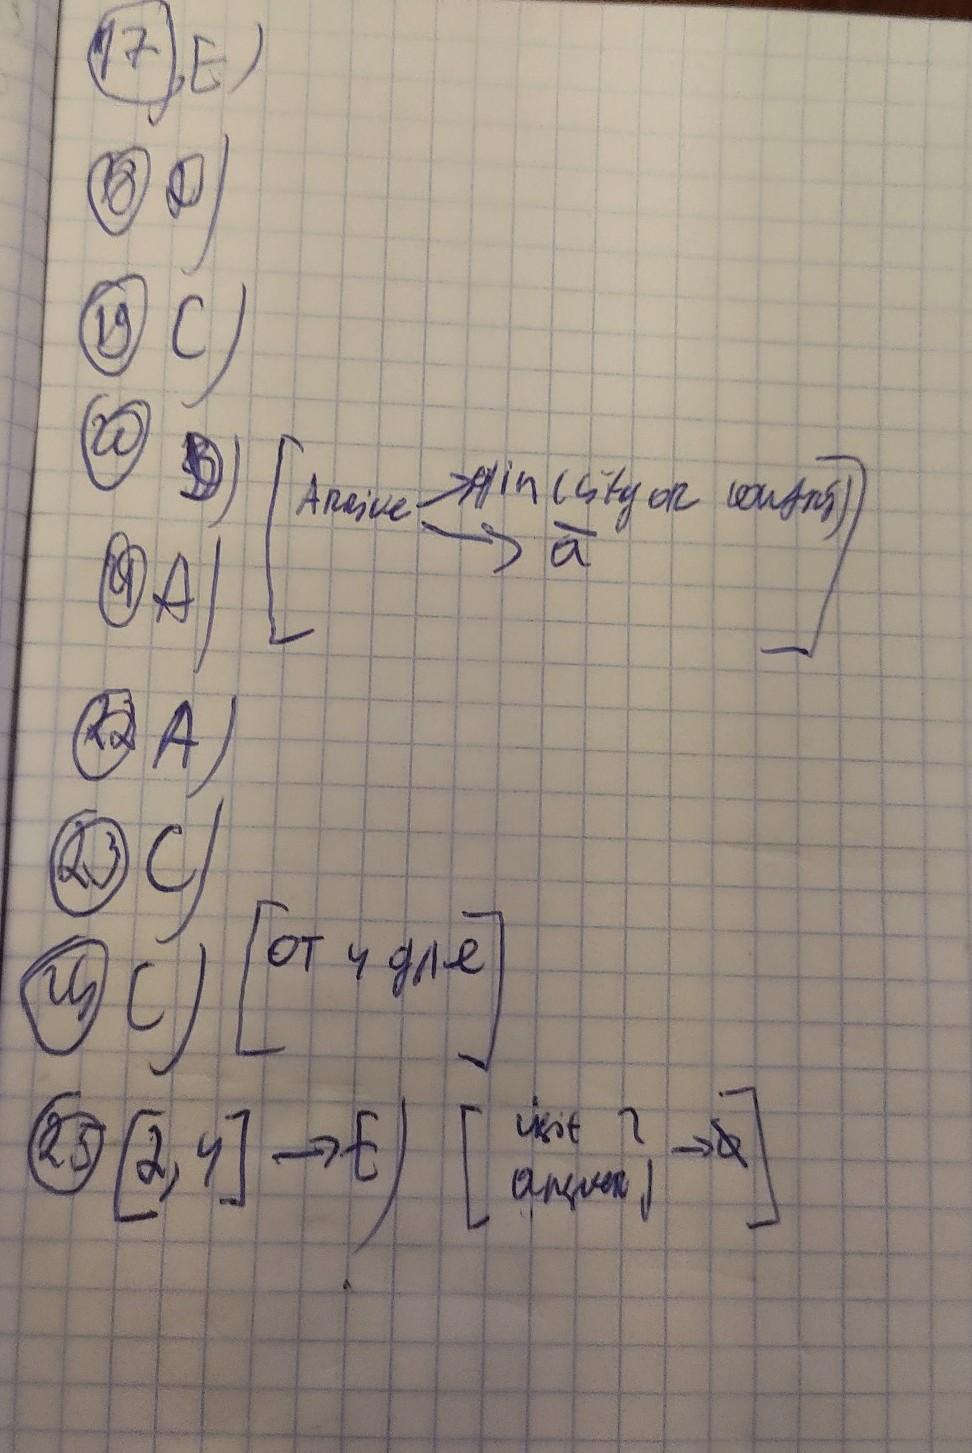 17, E)
18 D)
19 C)
20 B) [Arrive → in (city or country)
→ a]
A)
22 A)
23 C)
24 C) [от 4 дпе]
25 [2,4] → E) [visit
answer → ]